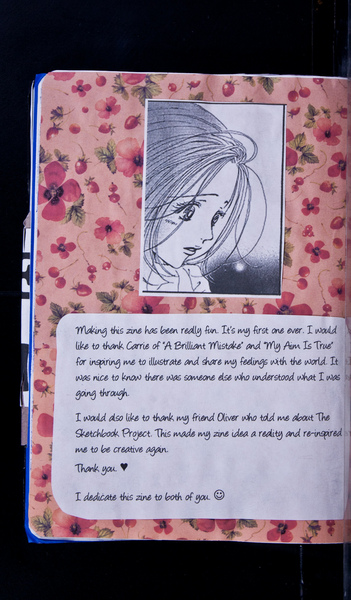 Making this zine has been really fun. It's my first one ever. I would
like to thank Carrie of "A Brilliant Mistake" and "My Aim Is True"
for inspiring me to illustrate and share my feelings with the world. It
was nice to know there was someone else who understood what I was
going through.
I would also like to thank my friend Oliver who told me about The
Sketchbook Project. This made my zine idea a reality and re-inspired
me to be creative again.
Thank you. ♥
I dedicate this zine to both of you. ☺